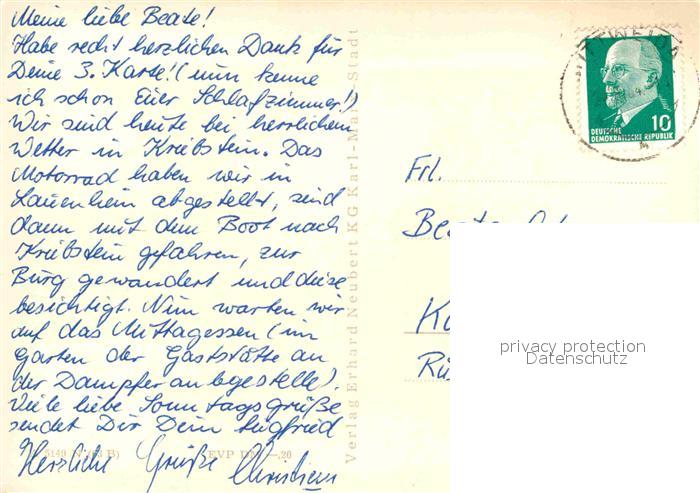 Meine liebe Beate!
Habe recht herzlichen Dank für
Deine 3. Karte! (nun kenne
ich schon Euer Schlafzimmer!)
Wir sind heute bei herrlichem
Wetter in Kriebstein. Das
Motorrad haben wir in
Lauenhain abgestellt, sind
dann mit dem Boot nach
Kriebstein gefahren, zur
Burg gewandert und diese
besichtigt. Nun warten wir
auf das Mittagessen (im
Garten der Gaststätte an
der Dampferanlegestelle).
Viele liebe Sonntagsgrüße
sendet Dir Dein Siegfried
Herzliche Grüße Christian
5149 (63 B) EVP DM -,20
Verlag Erhard Neubert KG Karl-Marx-Stadt
MITTWEIDA
10
DEUTSCHE
DEMOKRATISCHE REPUBLIK
Frl.
privacy protection
Datenschutz